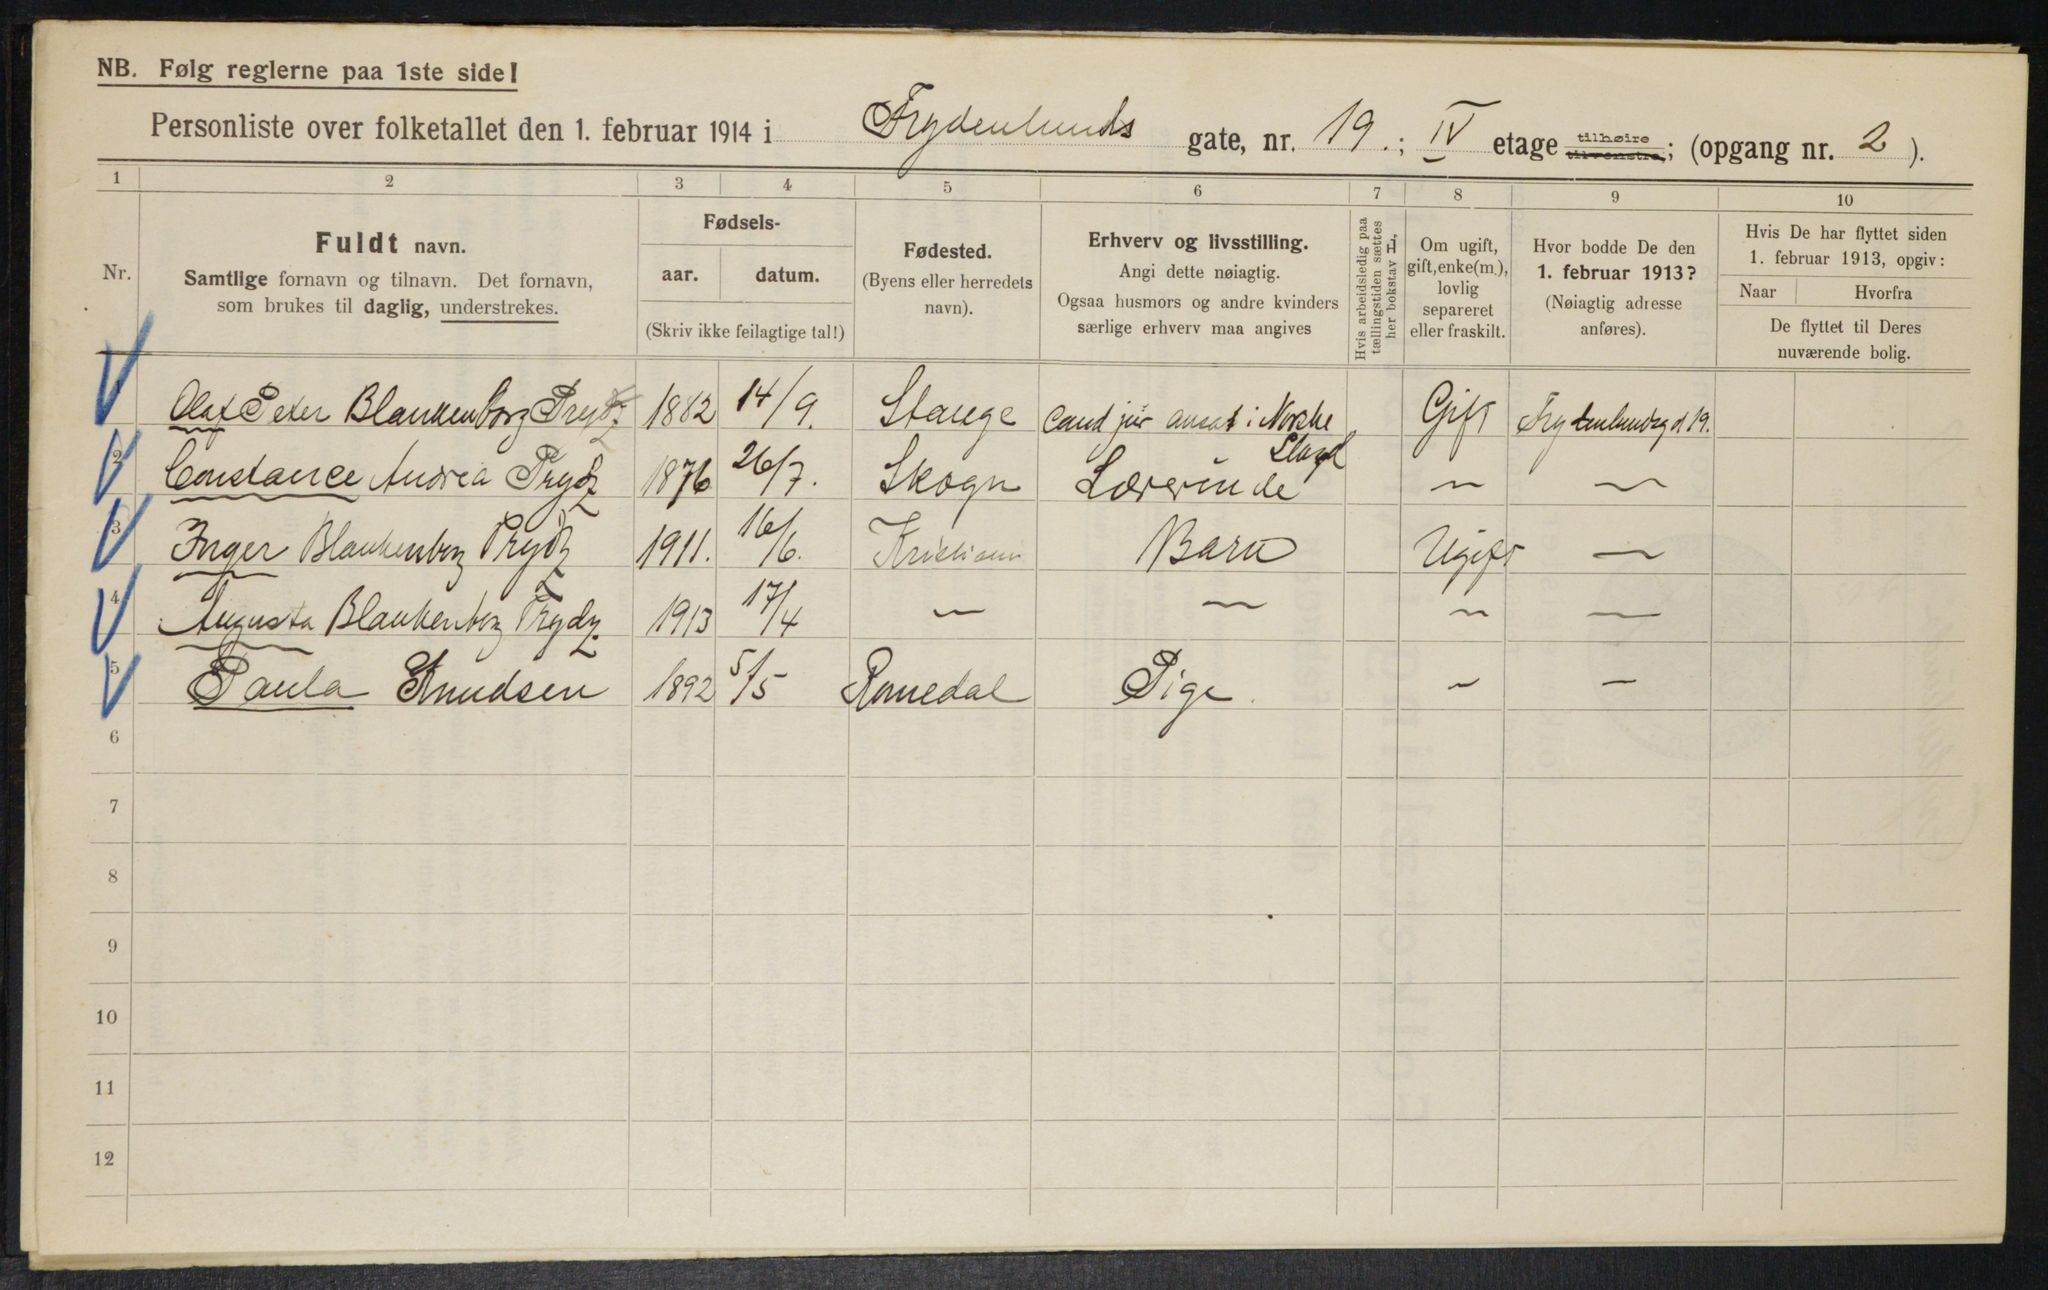 NB. Følg reglerne paa 1ste side!
Personliste over folketallet den 1. februar 1914 i Frydenlunds gate, nr. 19.; IV etage tilhøire tilvenstre; (opgang nr. 2).
1 2 3 4 5 6 7 8 9 10
Nr.
Fuldt navn.
Samtlige fornavn og tilnavn. Det fornavn,
som brukes til daglig, understrekes.
Fødsels-
aar. datum.
(Skriv ikke feilagtige tal!)
Fødested.
(Byens eller herredets
navn).
Erhverv og livsstilling.
Angi dette nøiagtig.
Ogsaa husmors og andre kvinders
særlige erhverv maa angives
Hvis arbeidsledig paa
tællingstiden sættes
her bokstav L,
Om ugift,
gift, enke(m.),
lovlig
separeret
eller fraskilt.
Hvor bodde De den
1. februar 1913?
(Nøiagtig adresse
anføres).
Hvis De har flyttet siden
1. februar 1913, opgiv:
Naar Hvorfra
De flyttet til Deres
nuværende bolig.
1 Olaf Peter Blankenborg Prydz 1882 14/9. Stange Cand jur ansat i Norske Stand Gift Frydenlundsg d 19.
2 Constance Andrea Prydz 1876 26/7. Skogn Lærerinde — —
3 Inger Blankenborg Prydz 1911. 16/6. Kristiania Barn Ugift —
4 Augusta Blankenborg Prydz 1913 17/4 — — — —
5 Paula Knudsen 1892 5/5 Romedal Pige. — —
6
7
8
9
10
11
12